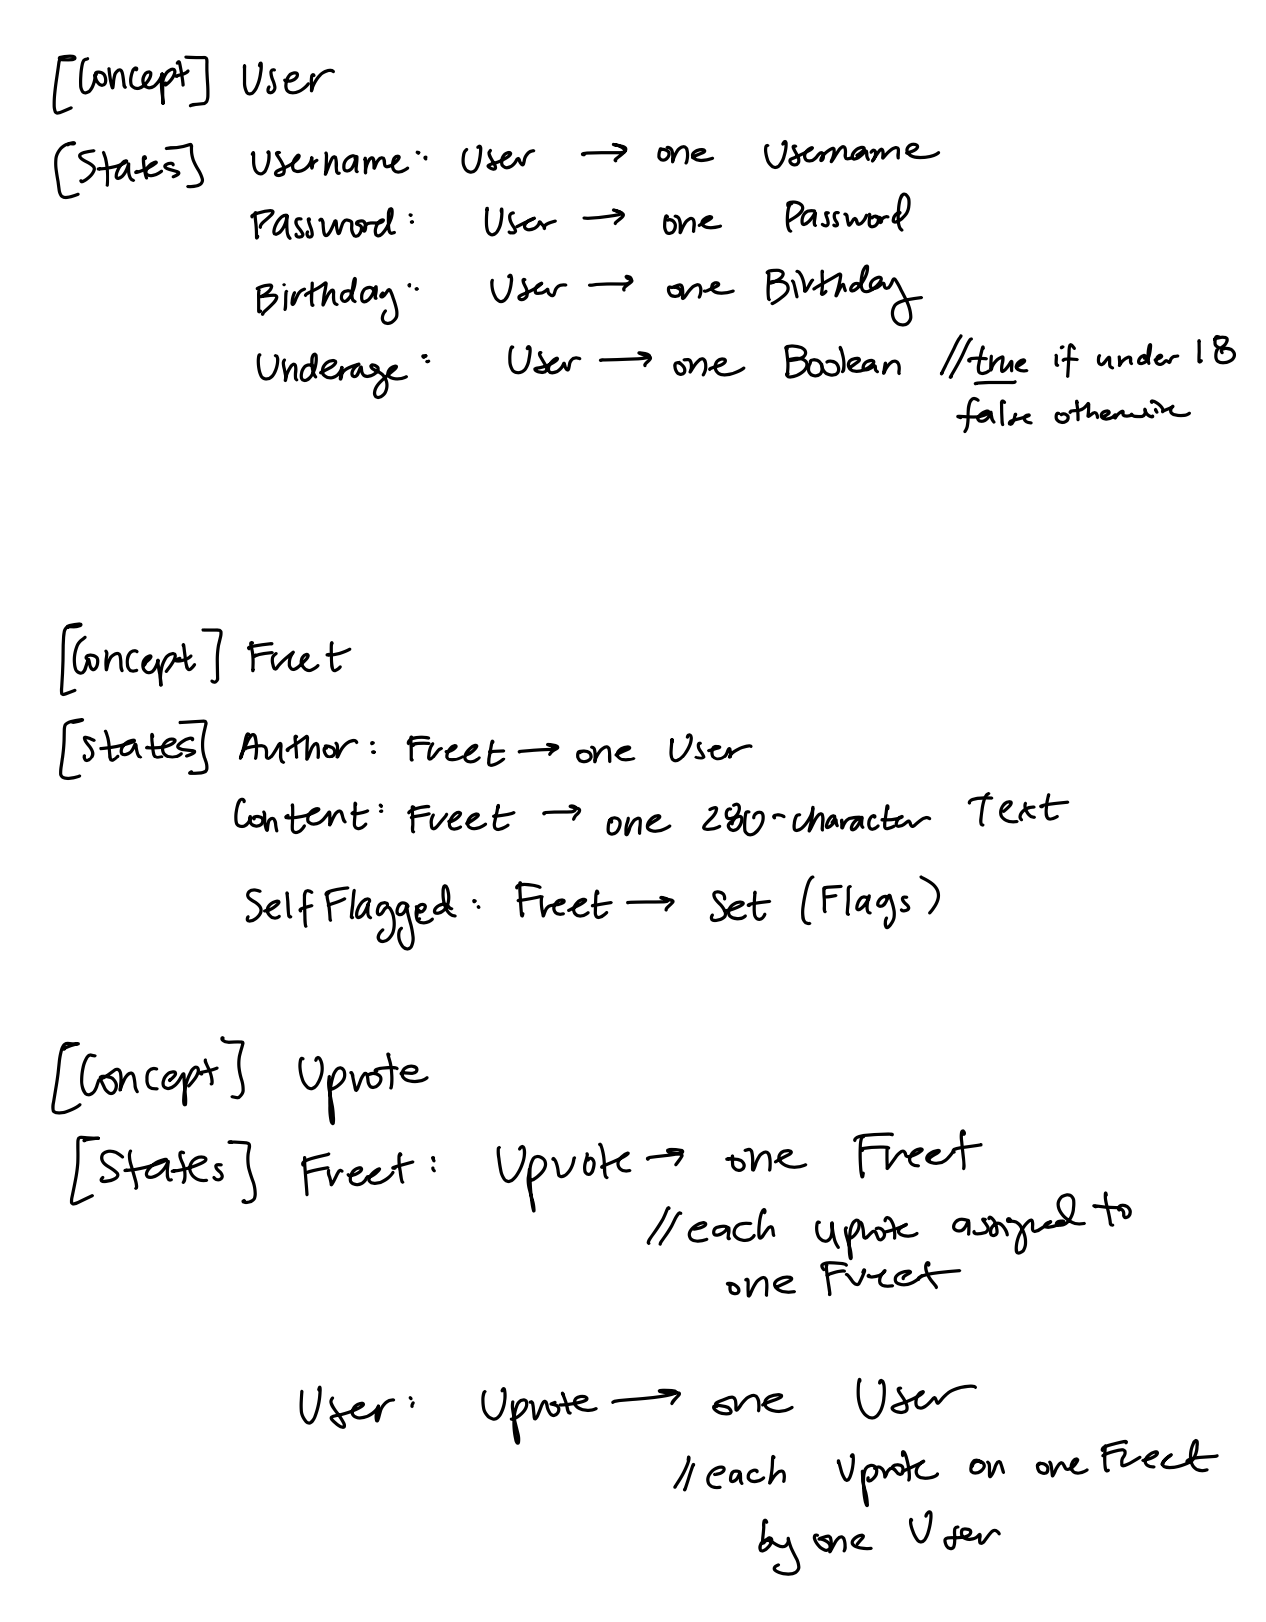 [Concept] User
[States] Username: User → one Username
Password: User → one Password
Birthday: User → one Birthday
Underage: User → one Boolean //true if under 18
false otherwise
[Concept] Freet
[states] Author: Freet → one User
Content: Freet → one 280-character Text
SelfFlagged: Freet → Set (Flags)
[Concept] Upvote
[States] Freet: Upvote → one Freet
//each upvote assigned to
one Freet
User: Upvote → one User
//each Upvote on one Freet
by one User